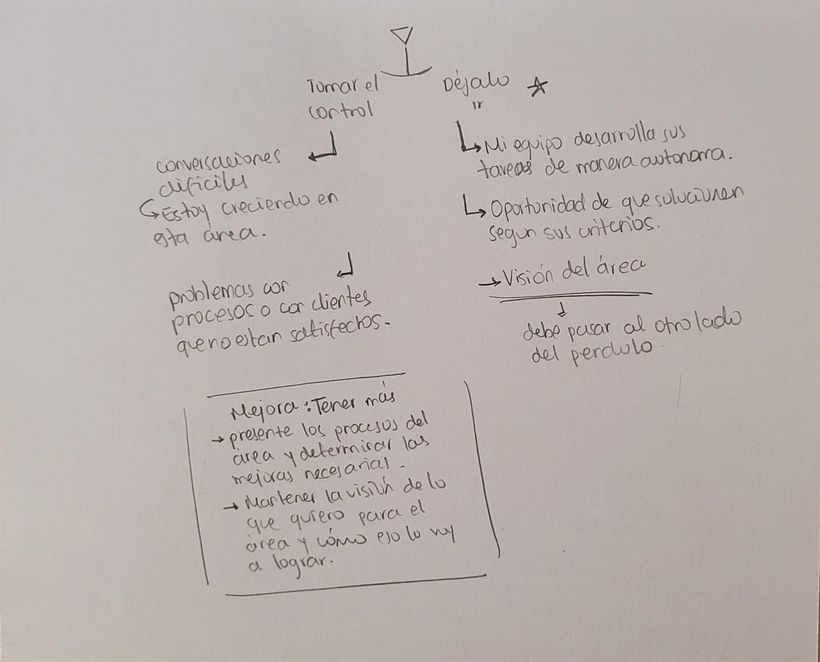 Tomar el
control
conversaciones
dificiles
Estoy creciendo en
esta área.
problemas con
procesos o con clientes
que no estan satisfechos.
Déjalo
ir
Mi equipo desarrolla sus
tareas de manera autonoma.
Oportunidad de que solucionen
segun sus criterios.
Visión del área
debe pasar al otro lado
del pendulo.
Mejora: Tener más
presente los procesos del
área y determinar las
mejoras necesarias.
Mantener la visión de lo
que quiero para el
área y cómo eso lo voy
a lograr.